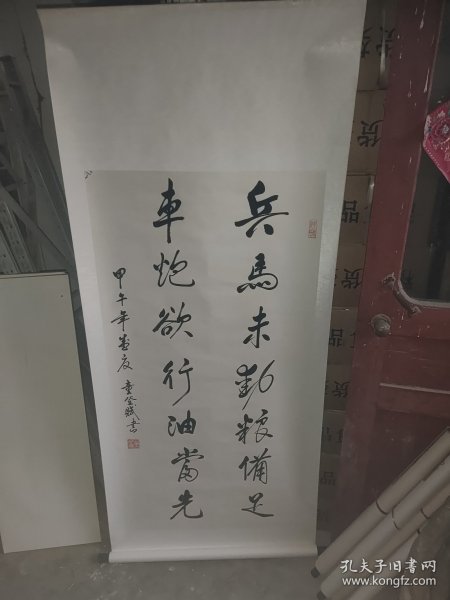 兵馬未動粮備足
車炮欲行油當先
甲午年孟夏 童登賦書
孔夫子旧书网
www.kongfz.com